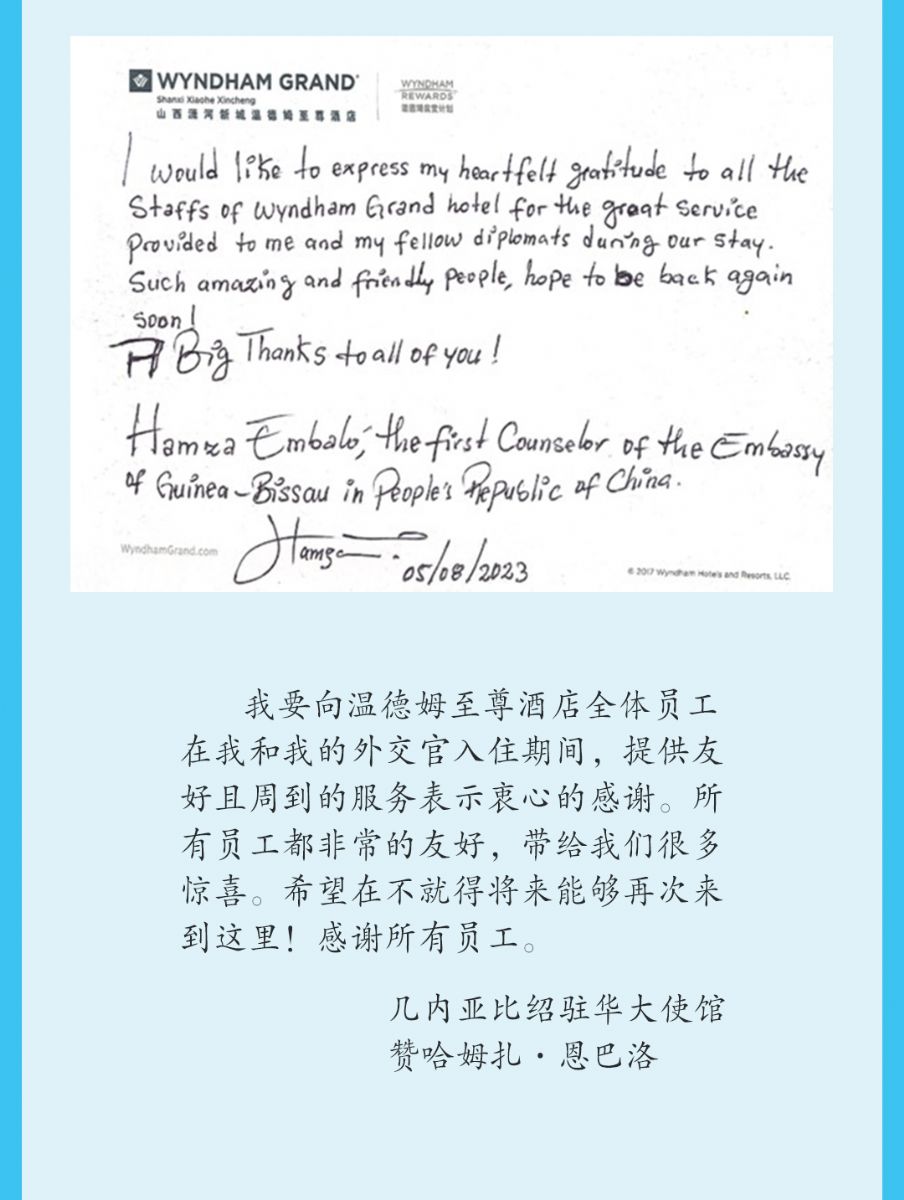 WYNDHAM GRAND
Shanxi Xiaohe Xincheng
山西潇河新城温德姆至尊酒店
WYNDHAM
REWARDS
温德姆奖赏计划
I would like to express my heartfelt gratitude to all the
Staffs of Wyndham Grand hotel for the great service
Provided to me and my fellow diplomats during our stay.
Such amazing and friendly people, hope to be back again
soon!
A Big Thanks to all of you!
Hamza Embaló, the first Counselor of the Embassy
of Guinea-Bissau in People's Republic of China.
Hamza
05/08/2023
WyndhamGrand.com
© 2017 Wyndham Hotels and Resorts, LLC.
我要向温德姆至尊酒店全体员工
在我和我的外交官入住期间，提供友
好且周到的服务表示衷心的感谢。所
有员工都非常的友好，带给我们很多
惊喜。希望在不就得将来能够再次来
到这里！感谢所有员工。
几内亚比绍驻华大使馆
赞哈姆扎·恩巴洛